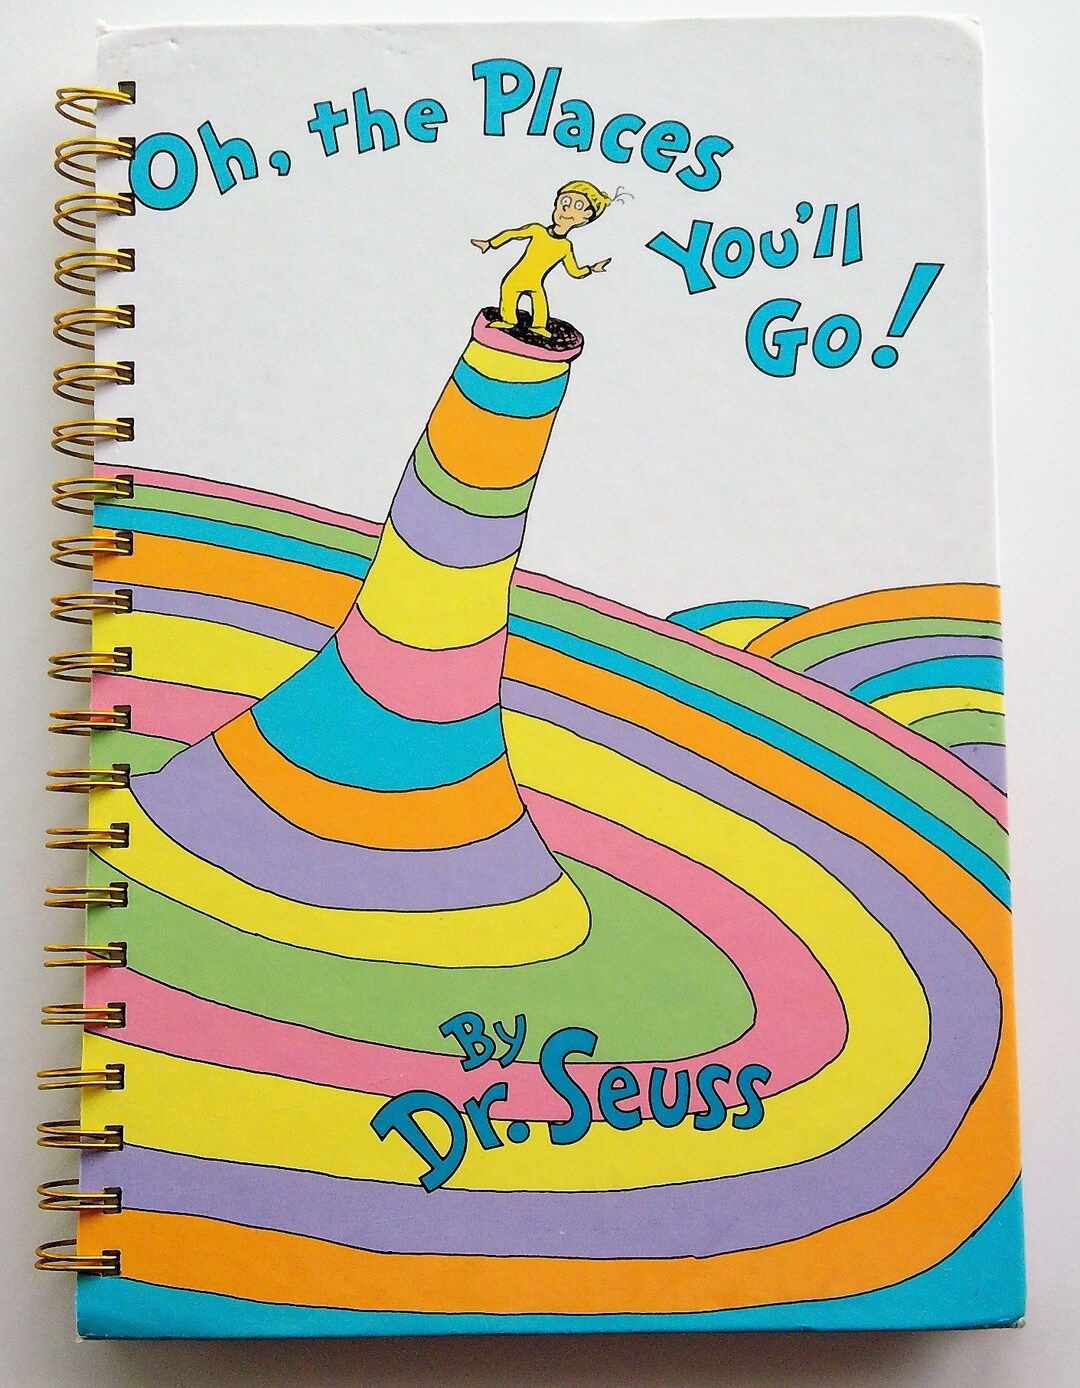 Oh, the Places
You'll
Go!
By
Dr. Seuss